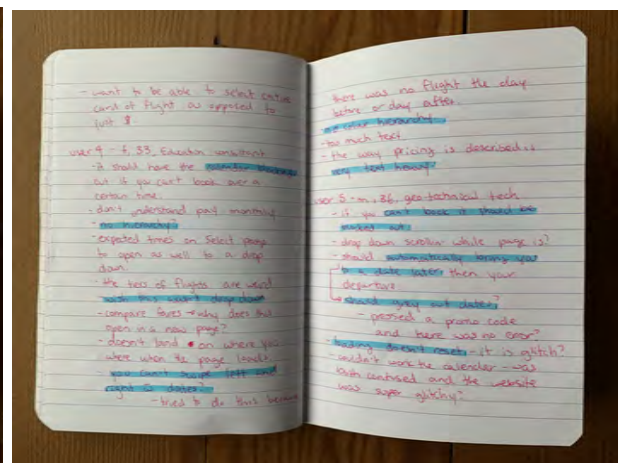 - want to be able to select entire
card of flight as opposed to
just $.
user 4 - f, 33, Education consultant
- it should have the calendar blacked
out if you can't book over a
certain time.
- don't understand pay monthly
- no hierarchy?
- expected times on select page
to open as well to a drop
down.
- the tiers of flights are weird
wish this wasn't drop down
- compare fares → why does this
open in a new page?
- doesn't land on where you
were when the page loads
- you can't swipe left and
right on dates?
- tried to do this because
there was no flight the day
before or day after.
- no color hierarchy
- too much text
- the way pricing is described is
very text heavy
user 5 - m, 36, geo-technical tech
- if you can't book it should be
out.
- drop down scroller while page is?
- should automatically bring you
to a date later then your
departure
should grey out dates?
- pressed a promo code
and there was no error?
- loading doesn't reset - it is glitch?
- couldn't work the calendar - was
both confused and the website
was super glitchy?